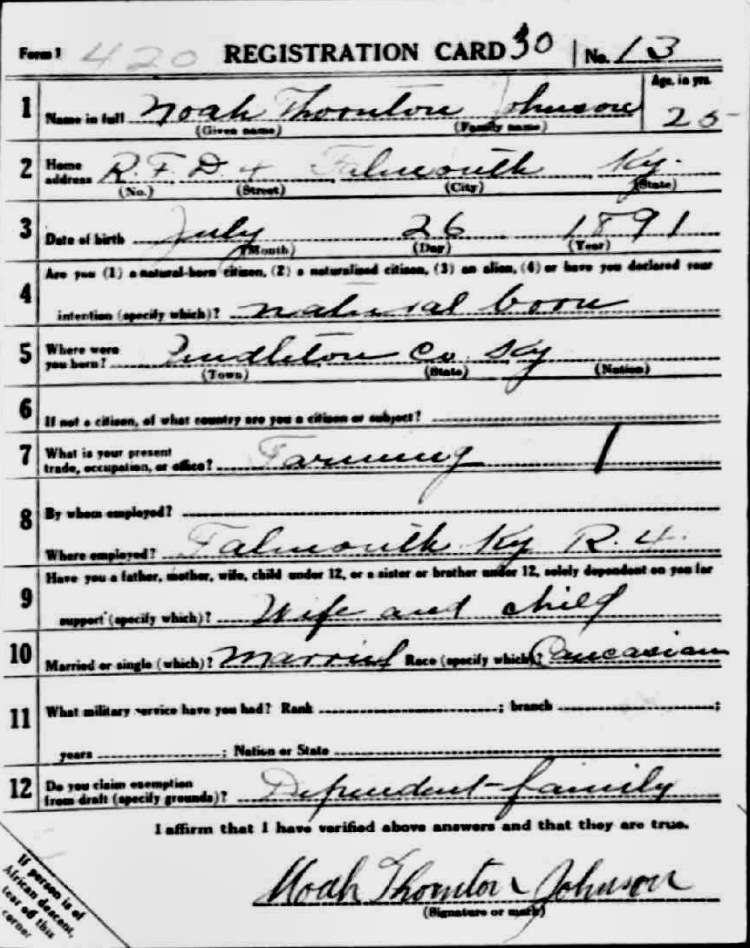 Form 1 420 REGISTRATION CARD 30 No. 13
Age, in yrs.
1 Name in full Noah Thornton Johnson 25
(Given name) (Family name)
2 Home address R.F.D 4 Falmouth Ky.
(No.) (Street) (City) (State)
3 Date of birth July 26 1891
(Month) (Day) (Year)
4 Are you (1) a natural-born citizen, (2) a naturalized citizen, (3) an alien, (4) or have you declared your
intention (specify which)? natural born
5 Where were you born? Pendleton Co. Ky
(Town) (State) (Nation)
6 If not a citizen, of what country are you a citizen or subject?
7 What is your present trade, occupation, or office? Farming 1
8 By whom employed?
Where employed? Falmouth Ky R. 4.
9 Have you a father, mother, wife, child under 12, or a sister or brother under 12, solely dependent on you for
support (specify which)? Wife and child
10 Married or single (which)? Married Race (specify which)? Caucasian
11 What military service have you had? Rank ; branch ;
years ; Nation or State
12 Do you claim exemption from draft (specify grounds)? Dependent-family
I affirm that I have verified above answers and that they are true.
Noah Thornton Johnson
(Signature or mark)
If person is of
African descent,
tear off this
corner